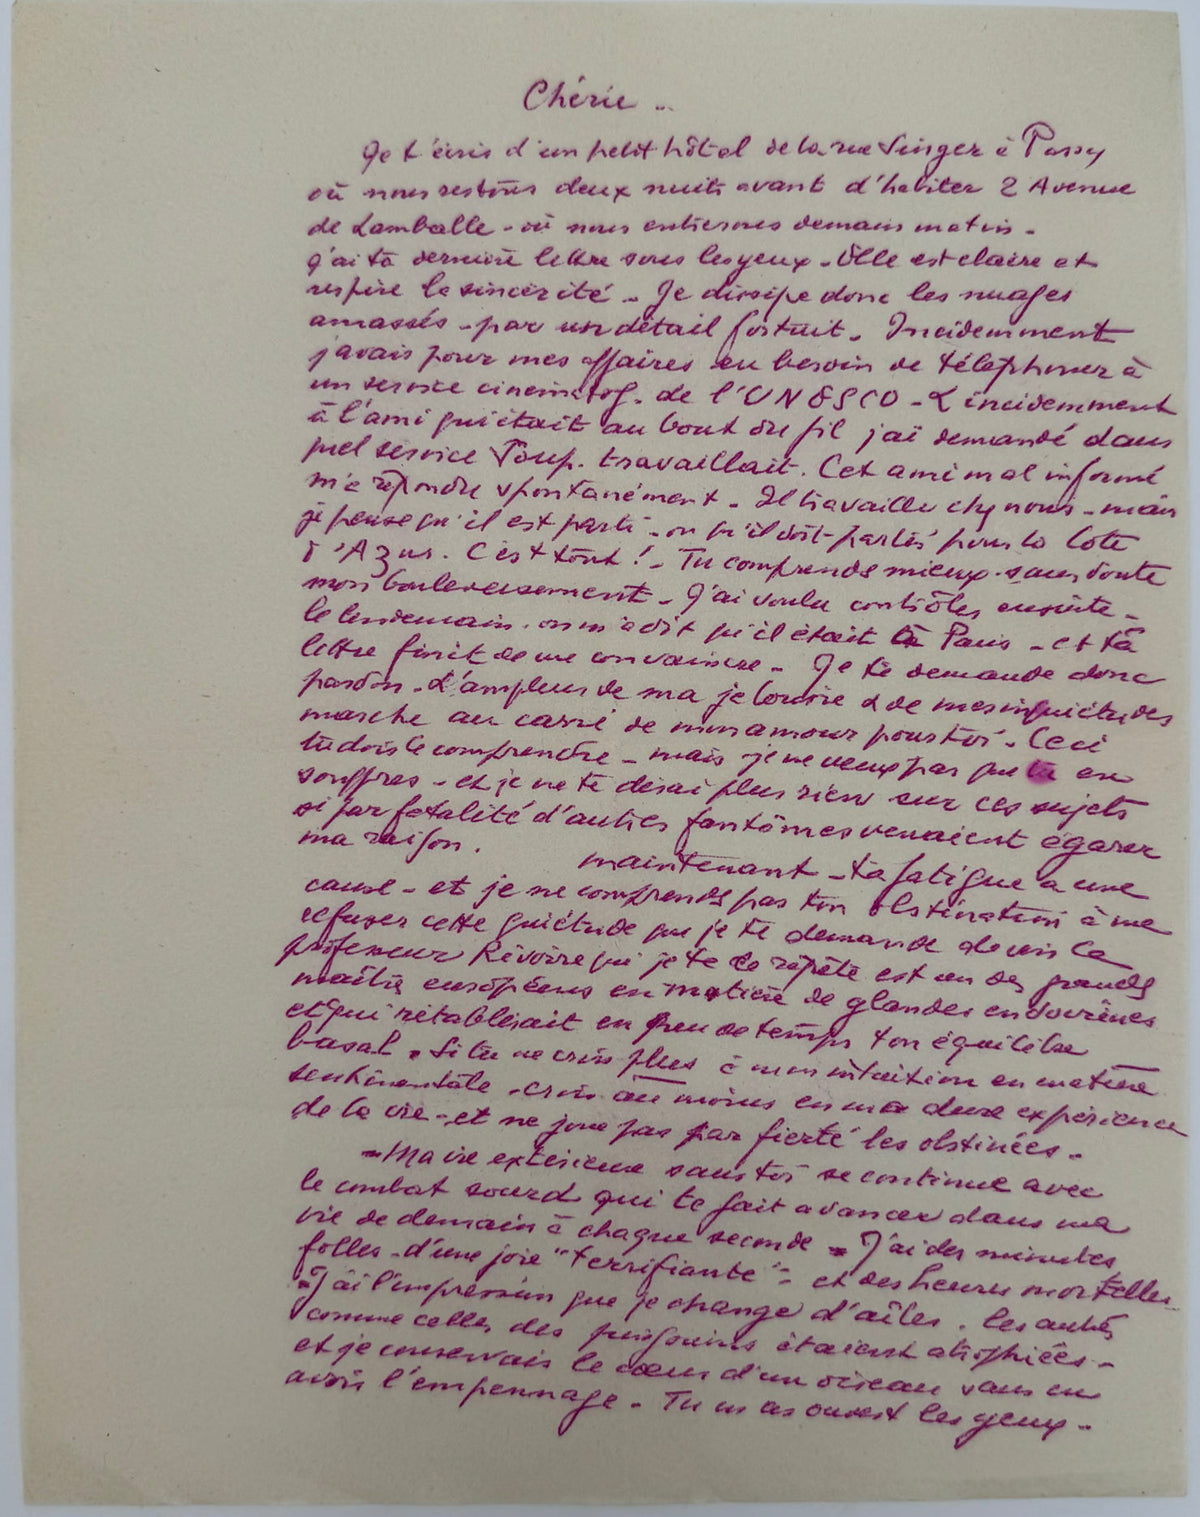 Chérie ..
Je t'écris d'un petit hôtel de la rue Singer à Passy
où nous restons deux nuits avant d'habiter 2 Avenue
de Lamballe - où nous entrerons demain matin -
j'ai ta dernière lettre sous les yeux - Elle est claire et
respire la sincérité - Je dissipe donc les nuages
amassés - par un détail fortuit - Incidemment
j'avais pour mes affaires eu besoin de téléphoner à
un service cinématog. de l'UNESCO - & incidemment
à l'ami qui était au bout du fil j'ai demandé dans
quel service travaillait. Cet ami mal informé
m'a répondu spontanément - Il travaille chez nous - mais
je pense qu'il est parti - ou qu'il doit partir pour la Côte
d'Azur. C'est tout ! - Tu comprends mieux sans doute
mon bouleversement - J'ai voulu contrôler ensuite -
le lendemain - on m'a dit qu'il était à Paris - et ta
lettre finit de me convaincre - Je te demande donc
pardon - L'ampleur de ma jalousie & de mes inquiétudes
marche au carré de mon amour pour toi - Ceci
tu dois le comprendre - mais je ne veux pas que tu en
souffres - et je ne te dirai plus rien sur ces sujets
si par fatalité d'autres fantômes venaient égarer
ma raison.
maintenant - ta fatigue a une
cause - et je ne comprends pas ton obstination à me
refuser cette quiétude que je te demande de voir le
professeur Rivoire qui je te le répète est un des grands
maîtres européens en matière de glandes endocrines
et qui rétablirait en peu de temps ton équilibre
basal. Si tu ne crois plus à mon intuition en matière
sentimentale - crois au moins en ma dure expérience
de la vie - et ne joue pas par fierté les obstinées -
- Ma vie extérieure sans toi se continue avec
le combat sourd qui te fait avancer dans ma
vie de demain à chaque seconde - J'ai des minutes
folles - d'une joie "terrifiante" - et des heures mortelles
- J'ai l'impression que je change d'ailes - les autres
comme celles des pingouins étaient atrophiées -
et je conservais le cœur d'un oiseau sans en
avoir l'empennage - Tu m'as ouvert les yeux -